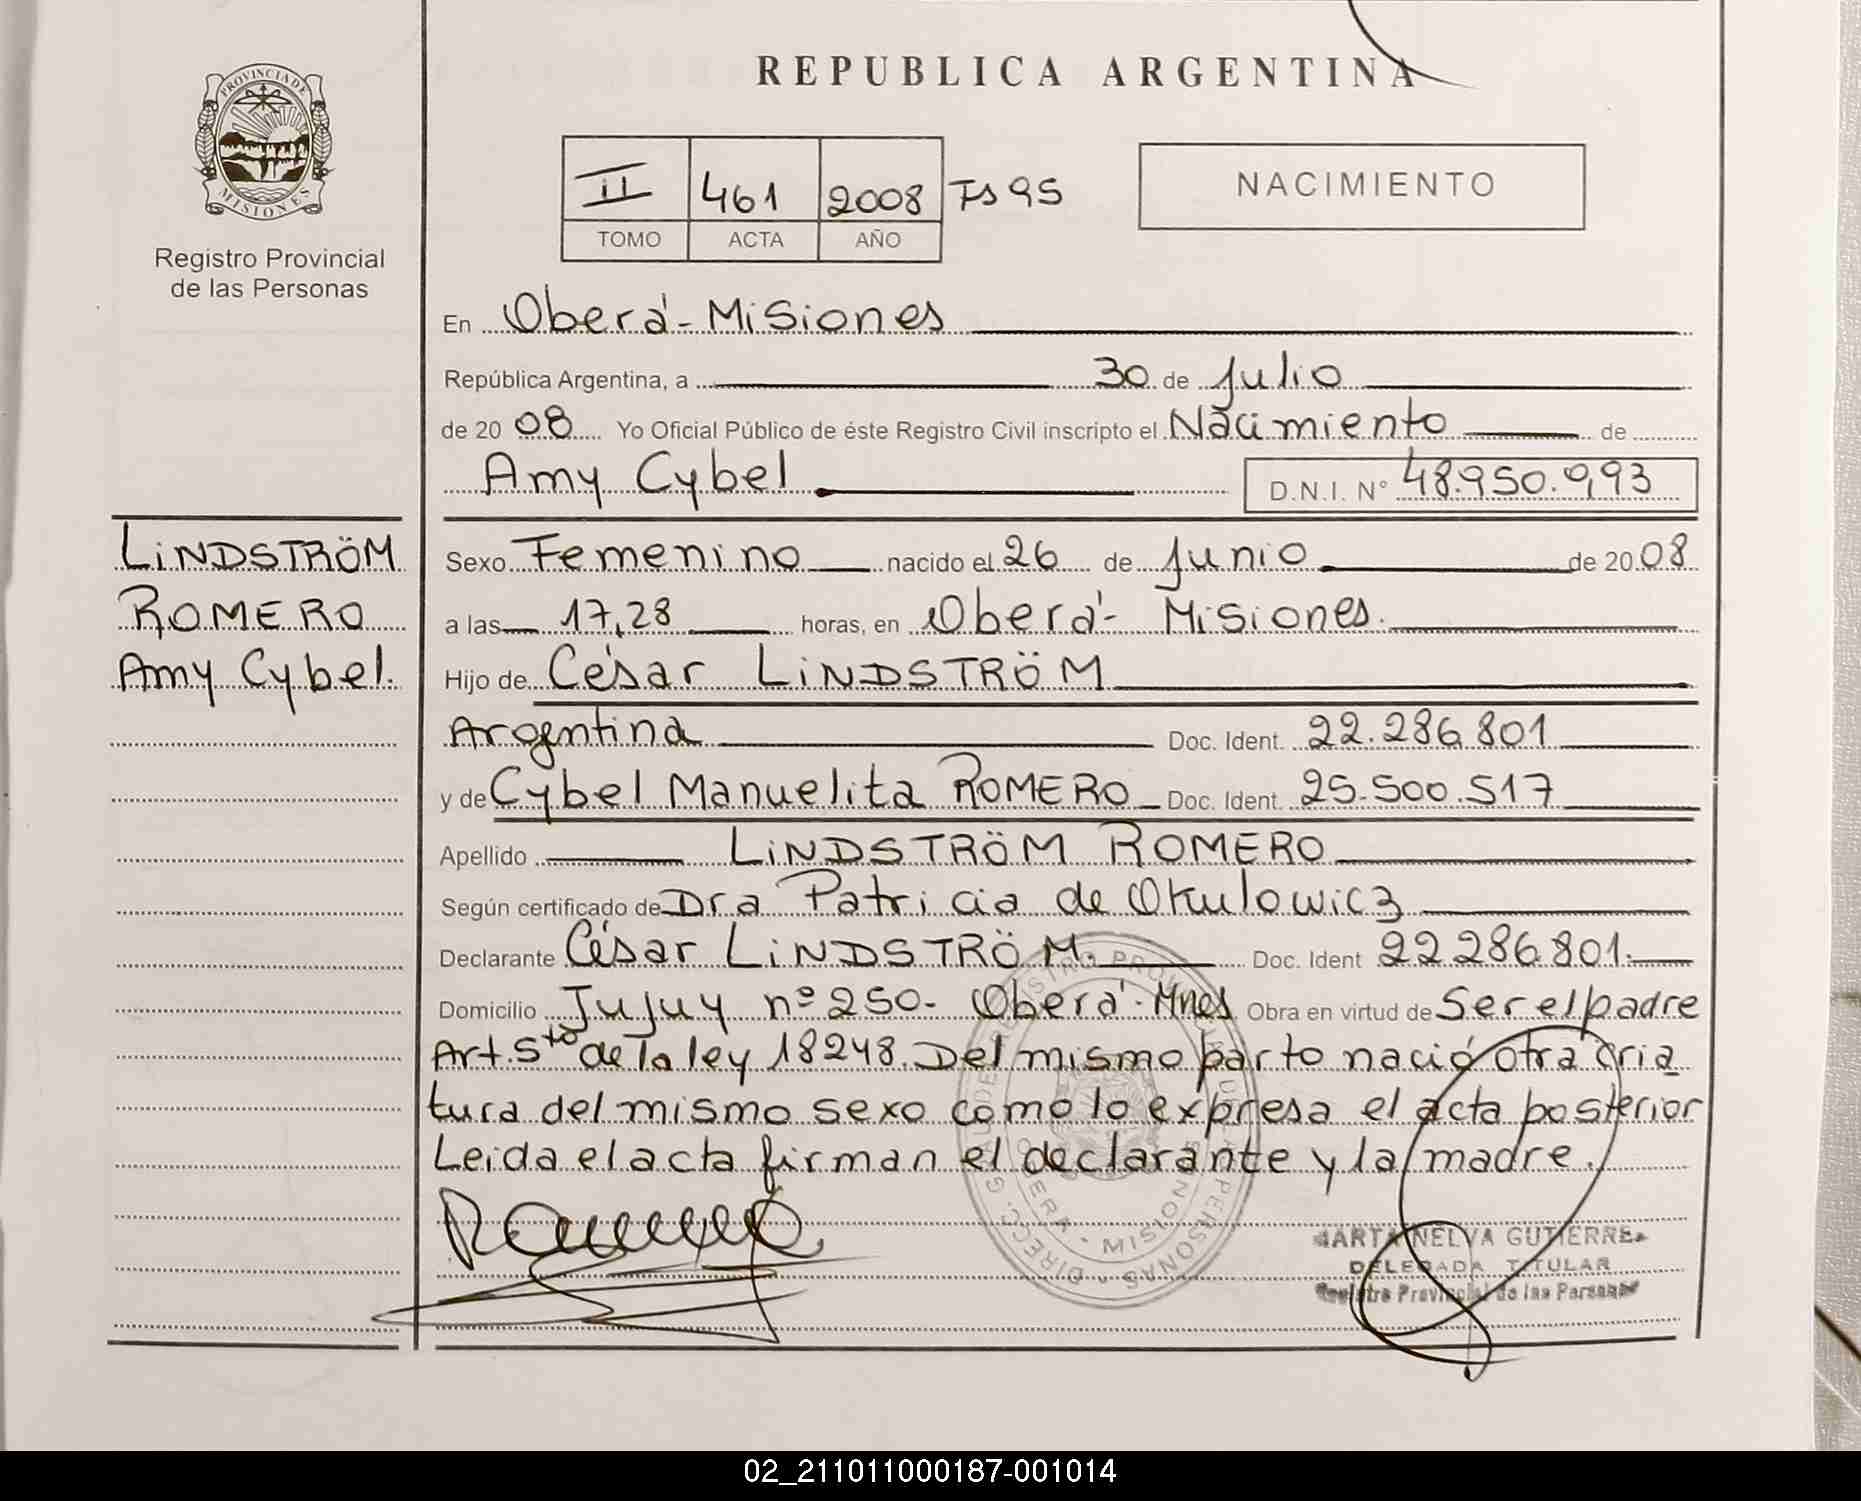 REPUBLICA ARGENTINA
PROVINCIA DE
MISIONES
Registro Provincial
de las Personas
II 461 2008 Fs 95
TOMO ACTA AÑO
NACIMIENTO
En Oberá - Misiones
República Argentina, a 30 de Julio
de 20 08 Yo Oficial Público de éste Registro Civil inscripto el Nacimiento de
Amy Cybel D.N.I. N° 48.950.993
LiNDSTRÖM
ROMERO
Amy Cybel.
Sexo Femenino nacido el 26 de Junio de 20 08
a las 17,28 horas, en Oberá - Misiones.
Hijo de César LiNDSTRÖM
Argentina Doc. Ident. 22.286.801
y de Cybel Manuelita ROMERO Doc. Ident. 25.500.517
Apellido LiNDSTRÖM ROMERO
Según certificado de Dra Patricia de Okulowicz
Declarante César LiNDSTRÖM. Doc. Ident 22.286.801.
Domicilio Jujuy nº 250 - Oberá - Mnes Obra en virtud de Ser el padre
Art. 5to de la ley 18248. Del mismo parto nació otra cria
tura del mismo sexo como lo expresa el acta posterior
Leida el acta firman el declarante y la madre.
MARTA NELVA GUTIERREZ
DELEGADA TITULAR
Registro Provincial de las Personas
OBERA - MISIONES
02_211011000187-001014